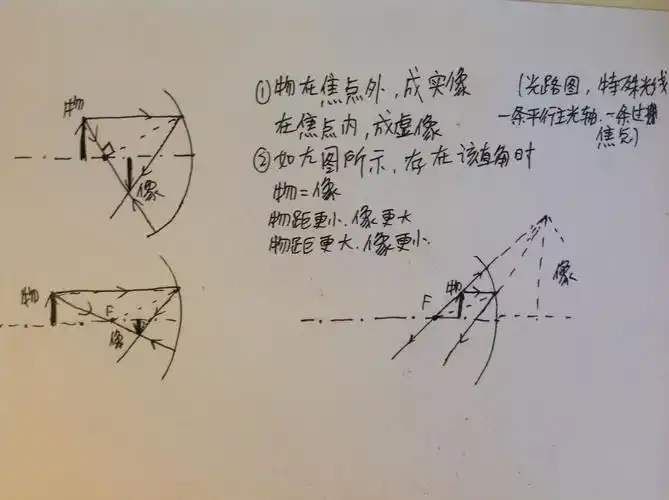 ①物在焦点外,成实像
在焦点内,成虚像
(光路图,特殊光线
一条平行主光轴,一条过
焦点)
②如左图所示,存在该直角时
物=像
物距更小.像更大
物距更大.像更小
物
像
物
F
像
F
物
像